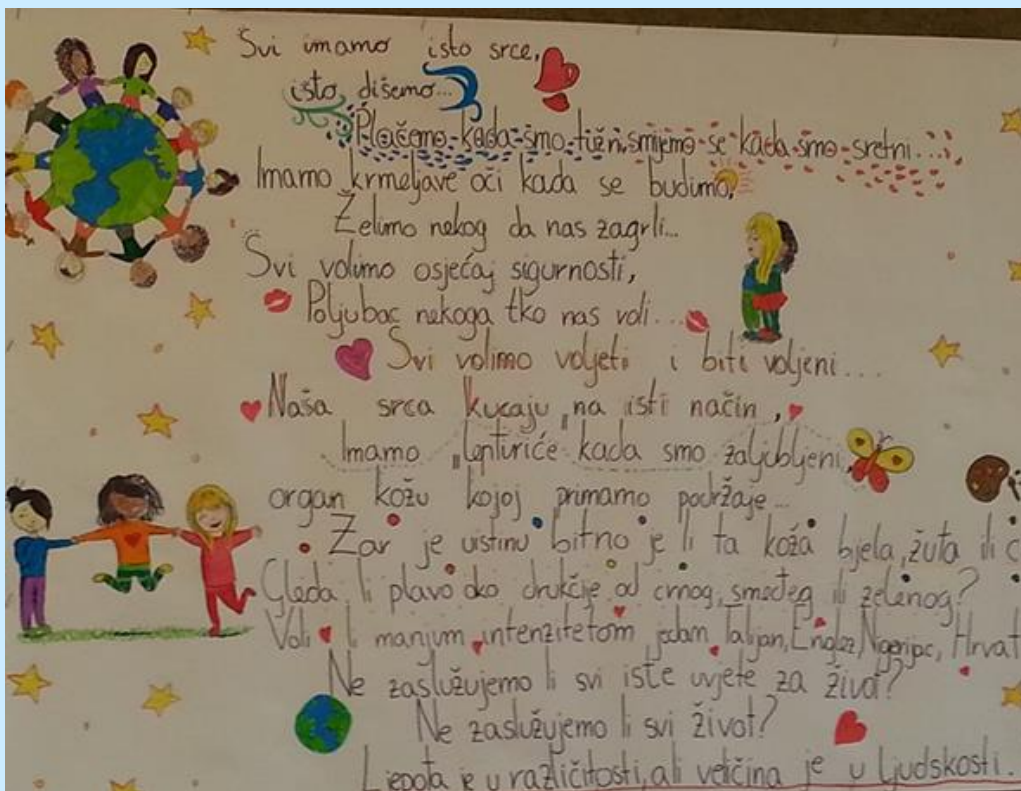 Svi imamo isto srce,
isto dišemo...
Plačemo-kada-smo-tužni, smijemo-se-kada-smo-sretni...
Imamo krmeljave oči kada se budimo,
Želimo nekog da nas zagrli...
Svi volimo osjećaj sigurnosti,
Poljubac nekoga tko nas voli...
Svi volimo voljeti i biti voljeni...
Naša srca kucaju na isti način,
Imamo leptiriće kada smo zaljubljeni,
organ kožu kojoj primamo podržaje...
Zar je uistinu bitno je li ta koža bjela, žuta ili c
Gleda li plavo oko drukčije od crnog, smeđeg ili zelenog?
Voli li manjim intenzitetom jedan Talijan, Englez, Nigerijac, Hrvat
Ne zaslužujemo li svi iste uvjete za život?
Ne zaslužujemo li svi život?
Ljepota je u različitosti, ali veličina je u ljudskosti.